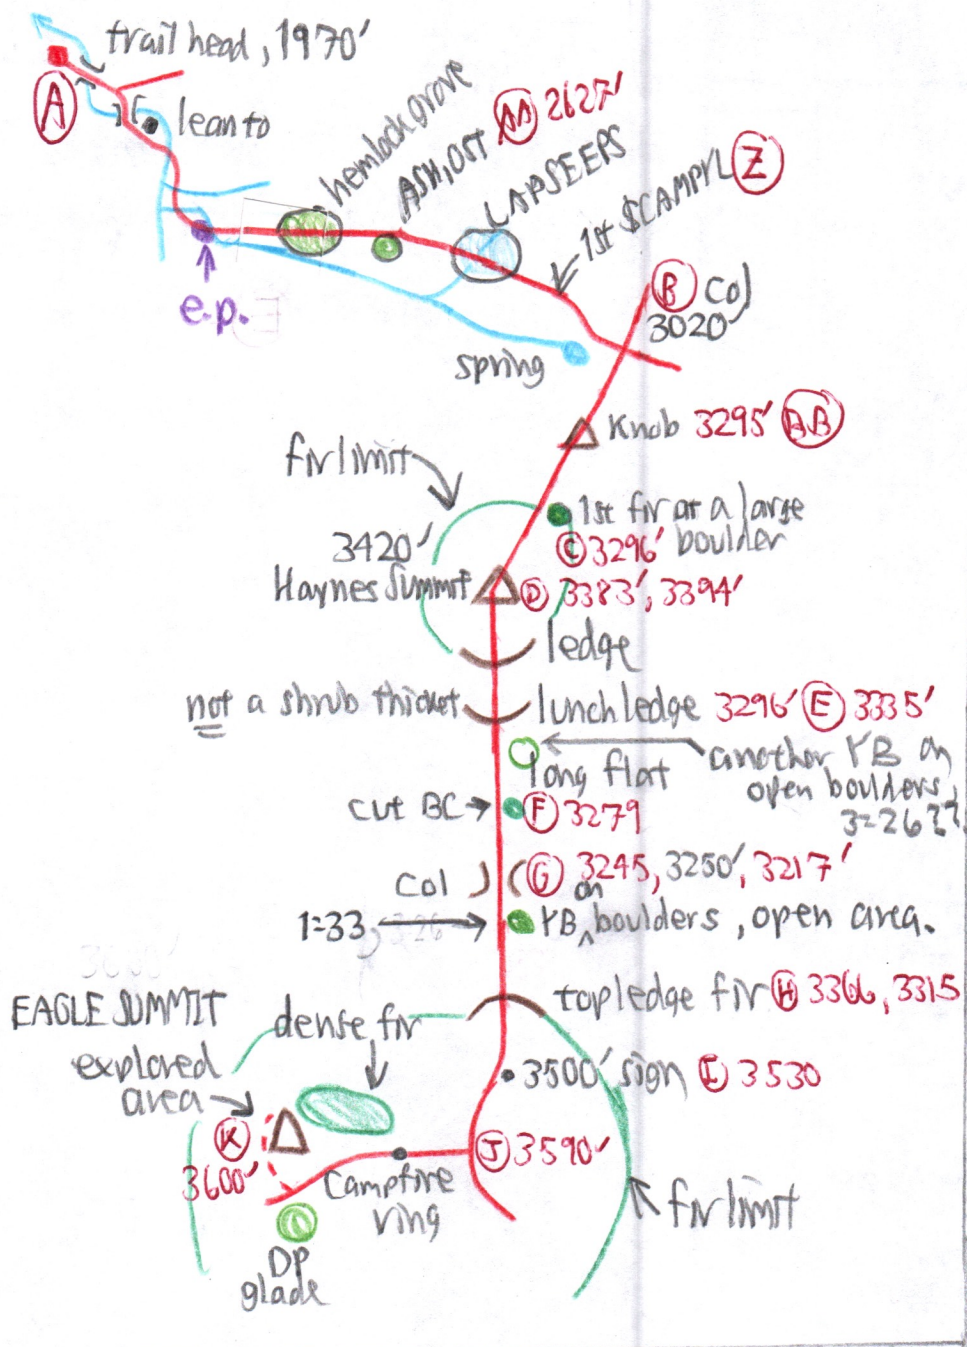 trail head, 1970'
A
lean to
hemlock grove
ASH, OST
AA 2627'
LAPSEEPS
1st SCAMPYL Z
e.p.
B Col
3020
spring
Knob 3295' BB
fir limit
1st fir at a large
C 3296' boulder
3420'
Haynes Summit
D 3383', 3394'
ledge
not a shrub thicket
lunch ledge 3296' E 3335'
another YB on
open boulders,
long flat
cut BC
F 3279
Col
G 3245, 3250', 3217'
1=33
YB on boulders, open area.
top ledge fir H 3366, 3315
EAGLE SUMMIT
dense fir
explored
area
3500' sign I 3530
K
3600'
J 3590'
Campfire
ring
fir limit
DP
glade